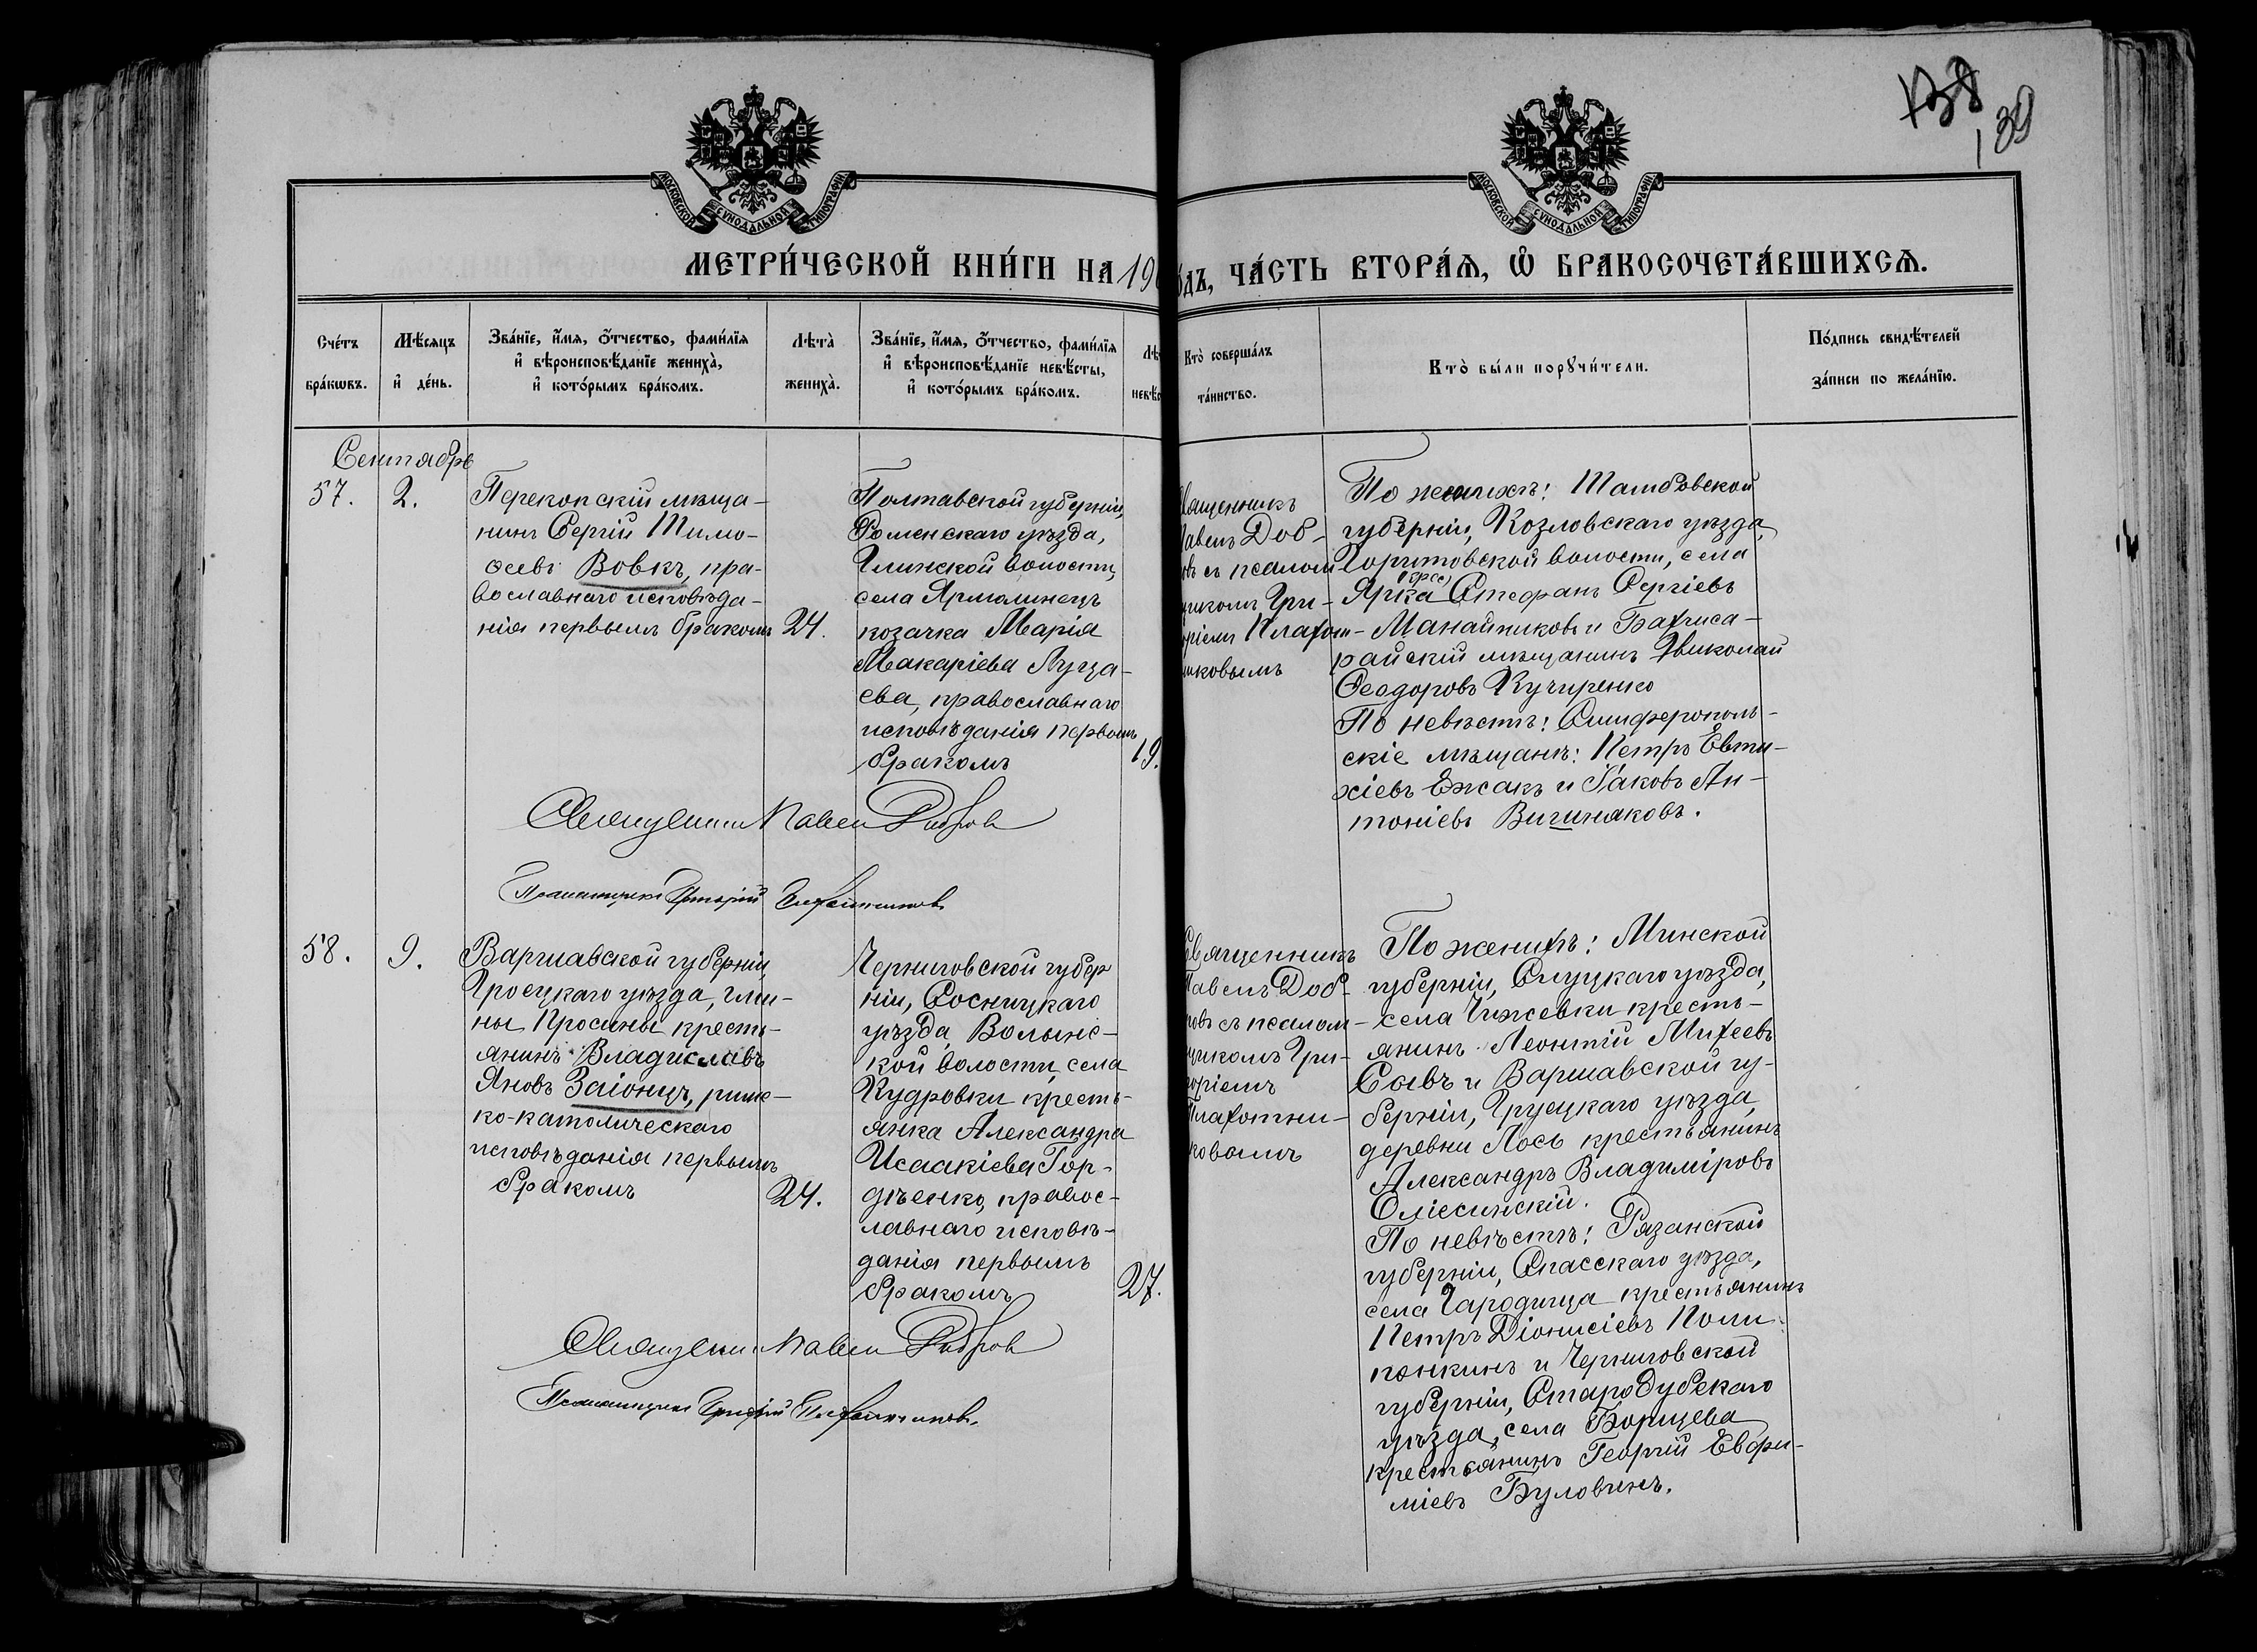 138
139
МОСКОВСКОЙ СѴНОДАЛЬНОЙ ТИПОГРАФІИ
МОСКОВСКОЙ СѴНОДАЛЬНОЙ ТИПОГРАФІИ
МЕТРИ́ЧЕСКОЙ КНИ́ГИ НА 190
о́дъ, ЧА́СТЬ ВТОРА́Ѧ, Ѽ БРАКОСОЧЕТА́ВШИХСѦ.
Сче́тъ бра́кωвъ.
Мѣ́сяцъ и҆ де́нь.
Зва́нїе, и҆́мя, о҆́тчество, фами́лїя
и҆ вѣроисповѣ́данїе жениха̀,
и҆ кото́рымъ бра́комъ.
Лѣта̀ жениха̀.
Зва́нїе, и҆́мя, о҆́тчество, фами́лїя
и҆ вѣроисповѣ́данїе невѣ́сты,
и҆ кото́рымъ бра́комъ.
Лѣ
невѣс
Кто̀ соверша́лъ
та́инство.
Кто̀ бы́ли порꙋчи́тели.
По́дпись свидѣ́телей
за́писи по жела́нїю.
Сентябрь
57.
2.
Перекопскій мѣща-
нинъ Сергій Тимо-
ѳеевъ Вовкъ, пра-
вославнаго исповѣда-
нія первымъ бракомъ
24.
Полтавской губерніи,
Роменскаго уѣзда,
Глинской волости,
села Ярмолинецъ
козачка Марія
Макаріева Лугца-
ева, православнаго
исповѣданія первымъ
бракомъ
19.
вященникъ
Павелъ Доб-
овъ съ псалом
щикомъ Гри-
оріемъ Плахот-
никовымъ
По женихѣ: Тамбовской
губерніи, Козловскаго уѣзда,
Горитовской волости, села
Ярка Стефанъ Сергіевъ
Манайниковъ и Бахчиса-
райскій мѣщанинъ Николай
Ѳеодоровъ Кучиренко
По невѣстѣ: Симферополь-
скіе мѣщане: Петръ Евти-
хіевъ Ежакъ и Іаковъ Ан-
тоніевъ Вигиняковъ.
Священникъ Павелъ Добровъ
Псаломщикъ Григорій Плахотниковъ
58.
9.
Варшавской губерніи
Гроецкаго уѣзда, гми-
ны Просины кресть-
янинъ Владиславъ
Яновъ Заіонцъ, римс-
ко-католическаго
исповѣданія первымъ
бракомъ
24.
Черниговской губер
ніи, Сосницкаго
уѣзда, Волынс-
кой волости, села
Кудровки кресть-
янка Александра
Исаакіева Гор-
дѣенко, правос-
лавнаго исповѣ-
данія первымъ
бракомъ
27.
Священникъ
Павелъ Доб-
ровъ съ псалом-
щикомъ Гри-
горіемъ
Плахотни-
ковымъ
По женихѣ: Минской
губерніи, Слуцкаго уѣзда,
села Чижевки кресть-
янинъ Леонтій Михеевъ
Сывъ и Варшавской гу-
берніи, Груецкаго уѣзда,
деревни Лось крестьянинъ
Александръ Владиміровъ
Олiесинскій.
По невѣстѣ: Рязанской
губерніи, Спасскаго уѣзда,
села Городища крестьянинъ
Петръ Діонисіевъ Поли
понкинъ и Черниговской
губерніи, Стародубскаго
уѣзда, села Борщева
крестьянинъ Георгій Евфи-
міевъ Буловинъ.
Священникъ Павелъ Добровъ
Псаломщикъ Григорій Плахотниковъ.